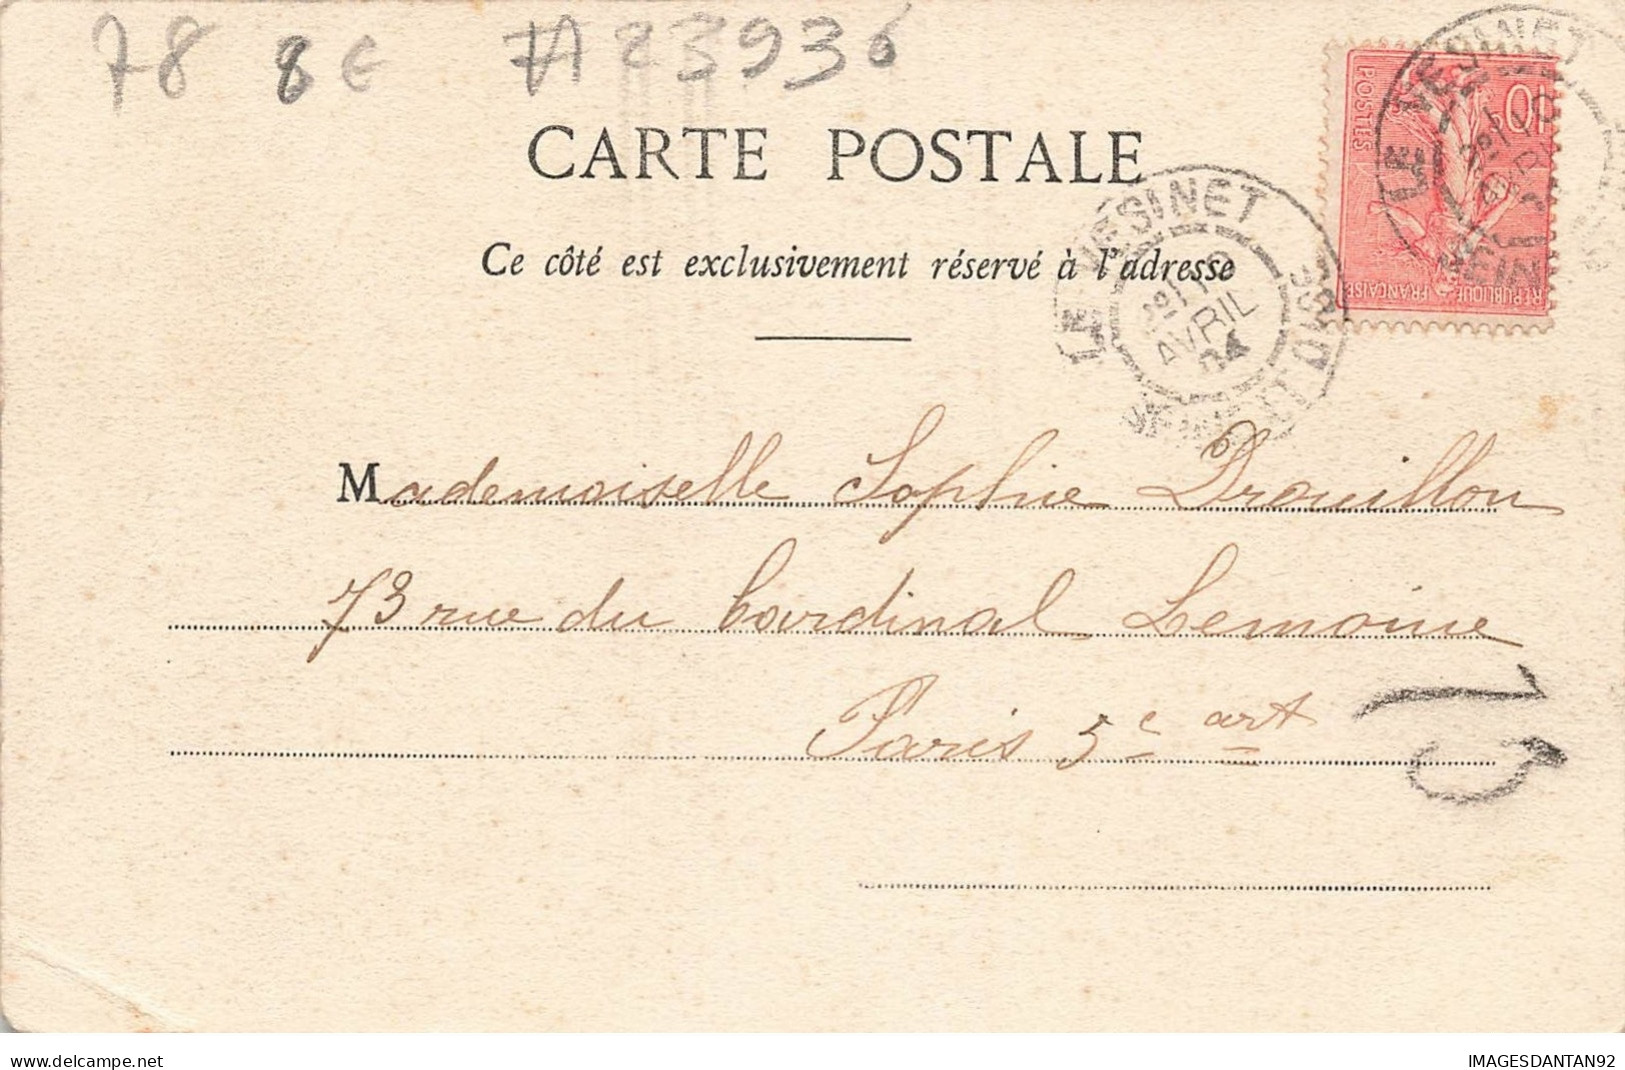 78 8€ 7A23936
LE VESINET
10c
POSTES
REPUBLIQUE FRANCAISE
CARTE POSTALE
LE VESINET
AVRIL
04
SEINE ET OISE
Ce côté est exclusivement réservé à l'adresse
Mademoiselle Sophie Drouillon
73 rue du Cardinal Lemoine
Paris 5e art
IMAGESDANTAN92